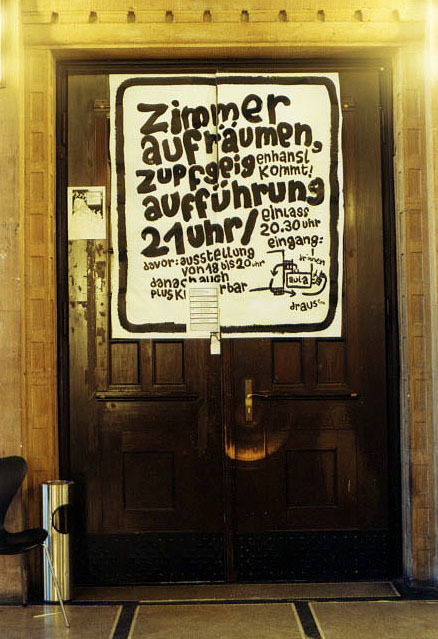 zimmer
aufräumen,
zupfgeigenhansl
kommt!
aufführung
21uhr/ einlass
20.30 uhr
davor: ausstellung
von 18 bis 20 uhr
danach auch
plus
bar
eingang:
drinnen
aula